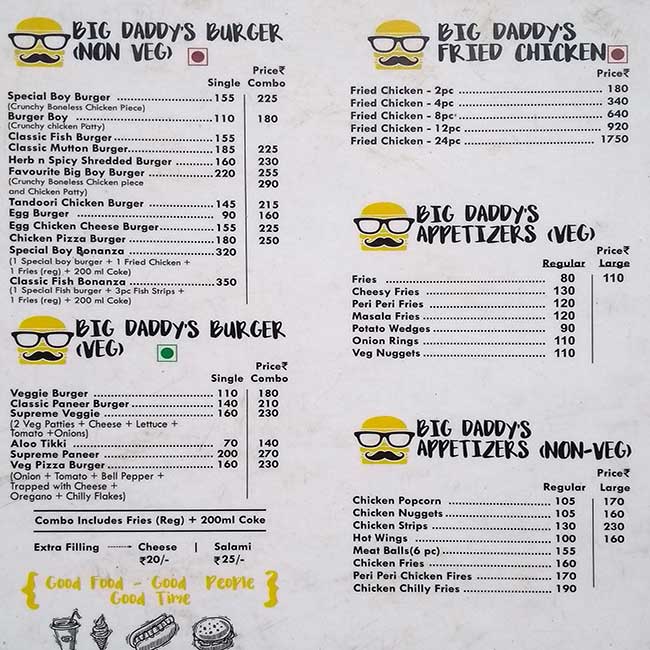 BIG DADDY'S BURGER
(NON VEG)
Price₹
Single Combo
Special Boy Burger 155 225
(Crunchy Boneless Chicken Piece)
Burger Boy 110 180
(Crunchy chicken Patty)
Classic Fish Burger 155
Classic Mutton Burger 185 225
Herb n Spicy Shredded Burger 160 230
Favourite Big Boy Burger 220 255
(Crunchy Boneless Chicken piece 290
and Chicken Patty)
Tandoori Chicken Burger 145 215
Egg Burger 90 160
Egg Chicken Cheese Burger 155 225
Chicken Pizza Burger 180 250
Special Boy Bonanza 320
(1 Special boy burger + 1 Fried Chicken +
1 Fries (reg) + 200 ml Coke)
Classic Fish Bonanza 350
(1 Special Fish burger + 3pc Fish Strips +
1 Fries (reg) + 200 ml Coke)
BIG DADDY'S BURGER
(VEG)
Price₹
Single Combo
Veggie Burger 110 180
Classic Paneer Burger 140 210
Supreme Veggie 160 230
(2 Veg Patties + Cheese + Lettuce +
Tomato +Onions)
Aloo Tikki 70 140
Supreme Paneer 200 270
Veg Pizza Burger 160 230
(Onion + Tomato + Bell Pepper +
Trapped with Cheese +
Oregano + Chilly Flakes)
Combo Includes Fries (Reg) + 200ml Coke
Extra Filling Cheese | Salami
₹20/- ₹25/-
{ Good Food - Good People }
Good Time
BIG DADDY'S
FRIED CHICKEN
Price₹
Fried Chicken - 2pc 180
Fried Chicken - 4pc 340
Fried Chicken - 8pc 640
Fried Chicken - 12pc 920
Fried Chicken - 24pc 1750
BIG DADDY'S
APPETIZERS (VEG)
Price₹
Regular Large
Fries 80 110
Cheesy Fries 130
Peri Peri Fries 120
Masala Fries 120
Potato Wedges 90
Onion Rings 110
Veg Nuggets 110
BIG DADDY'S
APPETIZERS (NON-VEG)
Price₹
Regular Large
Chicken Popcorn 105 170
Chicken Nuggets 105 160
Chicken Strips 130 230
Hot Wings 100 160
Meat Balls(6 pc) 155
Chicken Fries 160
Peri Peri Chicken Fires 170
Chicken Chilly Fries 190